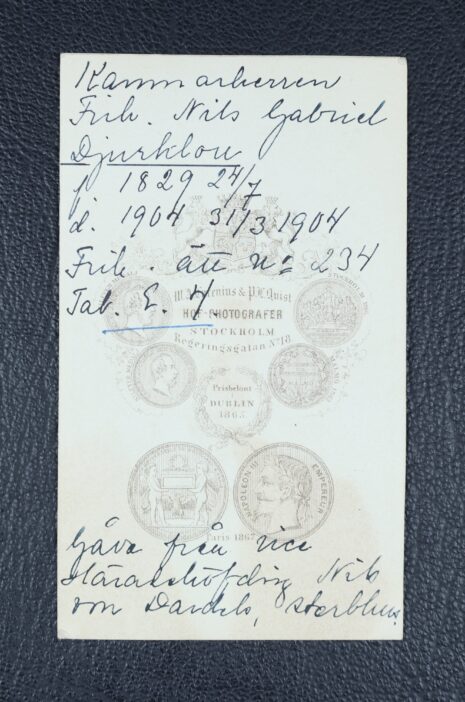 Kammarherren
Frih. Nils Gabriel
Djurklou
f. 1829 24/7
d. 1904 31/3 1904
Frih. ätt No 234
Tab. E. 4.
& P. L. Quist
HOF-PHOTOGRAFER
STOCKHOLM
Regeringsgatan No 18
Prisbelönt
DUBLIN
1865
NAPOLEON III EMPEREUR
Paris 1867
Gåva från vice
Häradshöfding Nils
von Dardels, sterbhus.